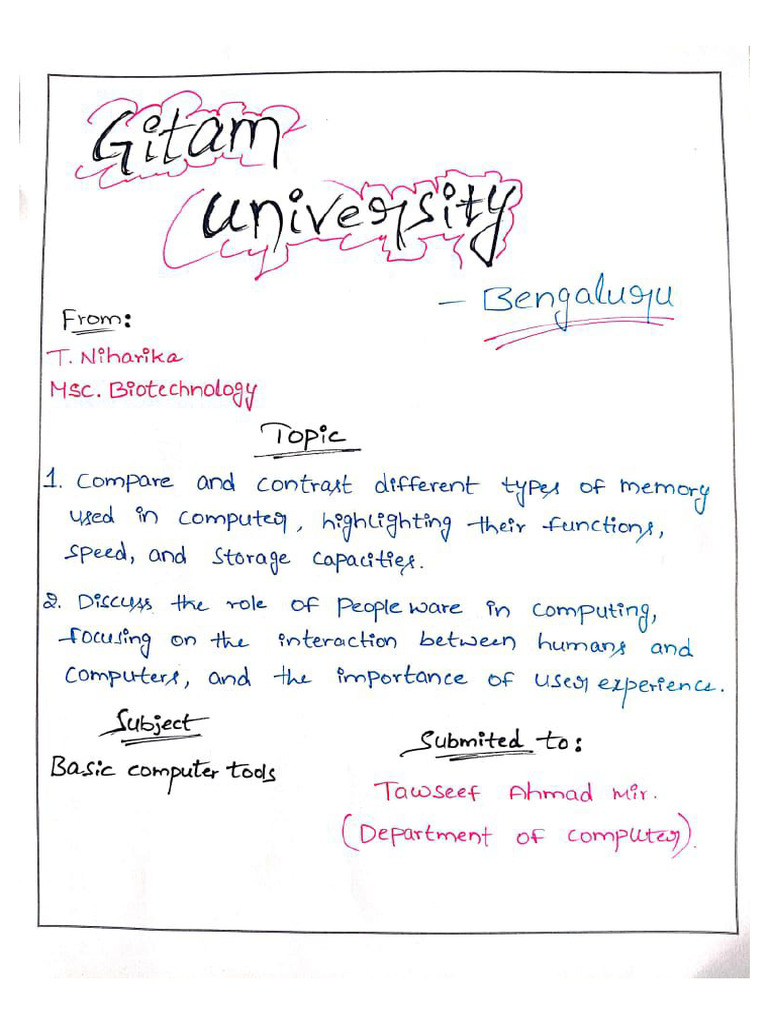 Gitam
University
- Bengaluru
From:
T. Niharika
MSC. Biotechnology
Topic
1. Compare and contrast different types of memory
used in computer, highlighting their functions,
speed, and storage capacities.
2. Discuss the role of people ware in computing,
focusing on the interaction between humans and
computers, and the importance of user experience.
Subject
Basic computer tools
Submited to:
Tawseef Ahmad Mir.
(Department of computer).